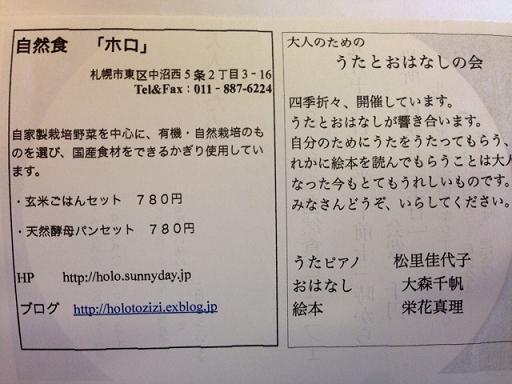 自然食　「ホロ」
札幌市東区中沼西５条２丁目３-16
Tel&Fax：011‐887-6224
自家製栽培野菜を中心に、有機・自然栽培のも
のを選び、国産食材をできるかぎり使用してい
ます。
・玄米ごはんセット　７８０円
・天然酵母パンセット　７８０円
HP　http://holo.sunnyday.jp
ブログ　http://holotozizi.exblog.jp
大人のための
うたとおはなしの会
四季折々、開催しています。
うたとおはなしが響き合います。
自分のためにうたをうたってもらう、
れかに絵本を読んでもらうことは大人
なった今もとてもうれしいものです。
みなさんどうぞ、いらしてください。
うたピアノ　松里佳代子
おはなし　大森千帆
絵本　栄花真理